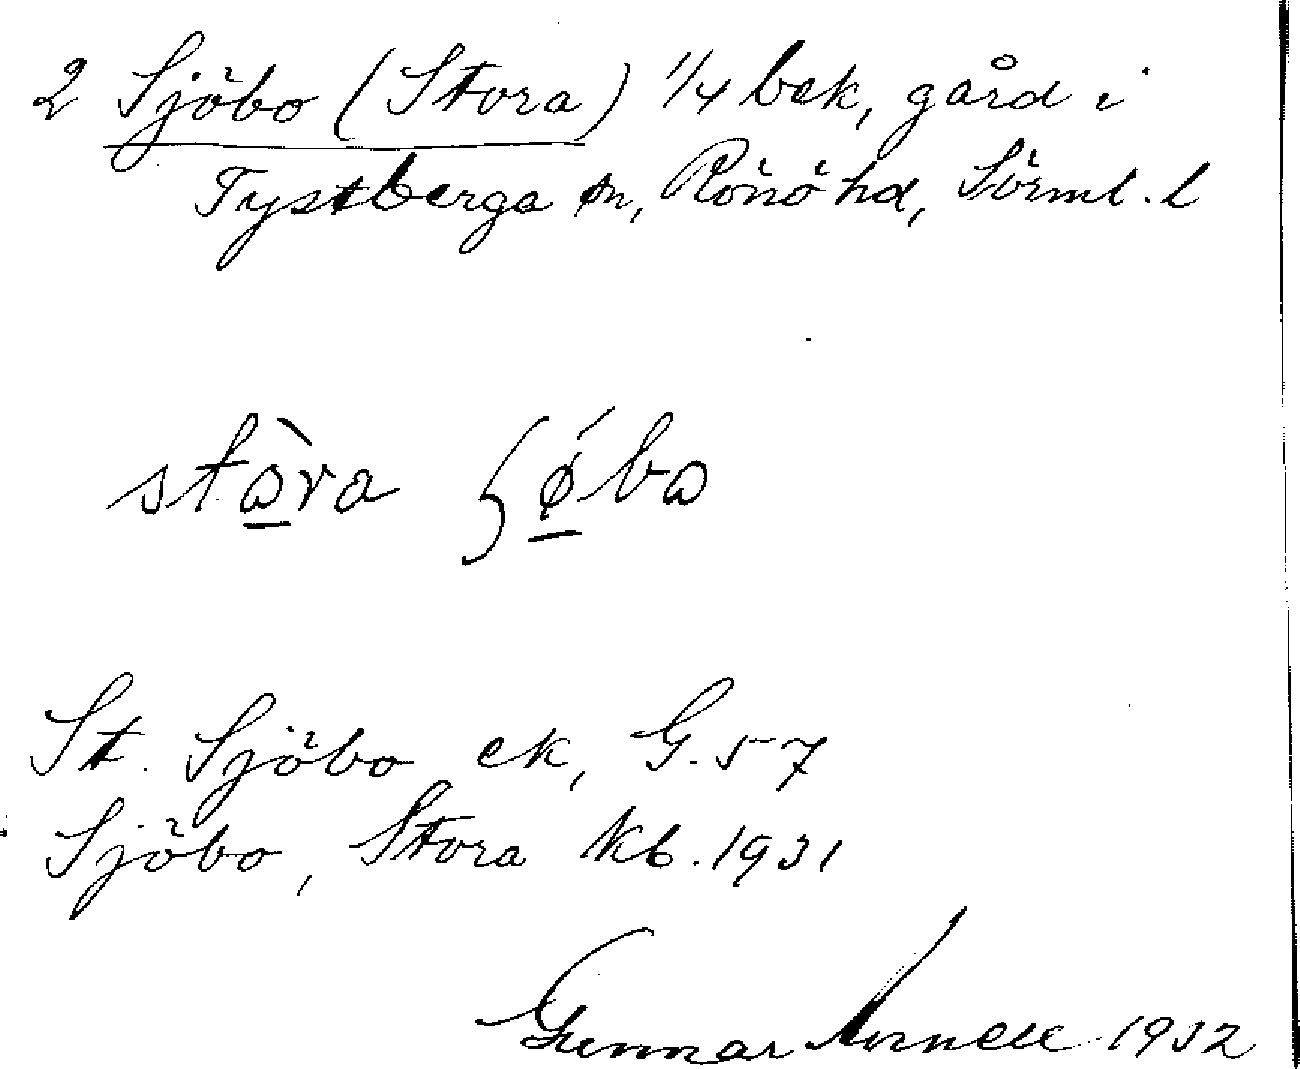 2 Sjöbo (Stora) 1/4 bek, gård i
Tystberga sn, Rönö hd, Sörml. l
stora ʃǿ̱bo
St. Sjöbo ek, G. 57
Sjöbo, Stora kb. 1931
Gunnar 1932